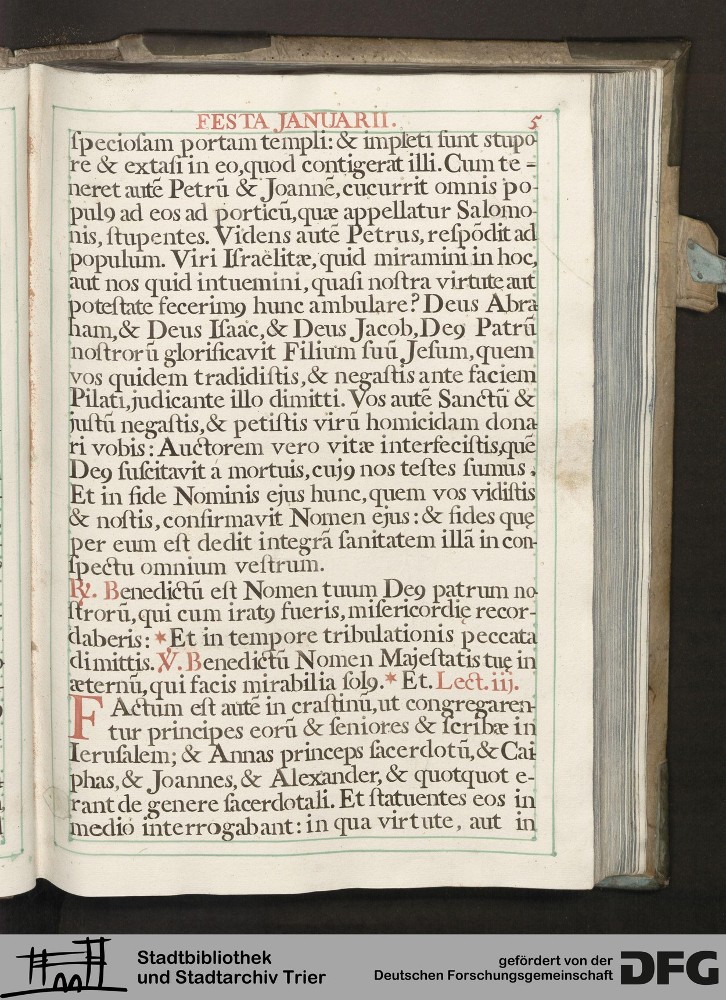 FESTA JANUARII. 5
ſpecioſam portam templi: & impleti ſunt stupo
re & extaſi in eo, quod contigerat illi. Cum te =
neret autē Petrū & Joannē, cucurrit omnis po-
pulꝰ ad eos ad porticū, quæ appellatur Salomo-
nis, ſtupentes. Videns autē Petrus, reſpōdit ad
populum. Viri Iſraëlitæ, quid miramini in hoc,
aut nos quid intuemini, quaſi noſtra virtute aut
poteſtate fecerimꝰ hunc ambulare? Deus Abra
ham, & Deus Iſaac, & Deus Jacob, Deꝰ Patrū
noſtrorū glorificavit Filium ſuū Jeſum, quem
vos quidem tradidiſtis, & negaſtis ante faciem
Pilati, judicante illo dimitti. Vos autē Sanctū &
juſtū negaſtis, & petiſtis virū homicidam dona
ri vobis: Auctorem vero vitæ interfeciſtis, quē
Deꝰ ſuſcitavit á mortuis, cujꝰ nos teſtes ſumus.
Et in fide Nominis ejus hunc, quem vos vidiſtis
& noſtis, confirmavit Nomen ejus: & fides quę
per eum eſt dedit integrā ſanitatem illā in con-
ſpectu omnium veſtrum.
℟. Benedictū eſt Nomen tuum Deꝰ patrum no
ſtrorū, qui cum iratꝰ fueris, miſericordię recor-
daberis: * Et in tempore tribulationis peccata
dimittis. ℣. Benedictū Nomen Majeſtatis tuę in
æternū, qui facis mirabilia ſolꝰ. * Et. Lect. iij.
FActum eſt autē in craſtinū, ut congregaren-
tur principes eorū & ſeniores & ſcribæ in
Ieruſalem; & Annas princeps ſacerdotū, & Cai
phas, & Joannes, & Alexander, & quotquot e-
rant de genere ſacerdotali. Et ſtatuentes eos in
medio interrogabant: in qua virtute, aut in
Stadtbibliothek
und Stadtarchiv Trier
gefördert von der
Deutschen Forschungsgemeinschaft
DFG